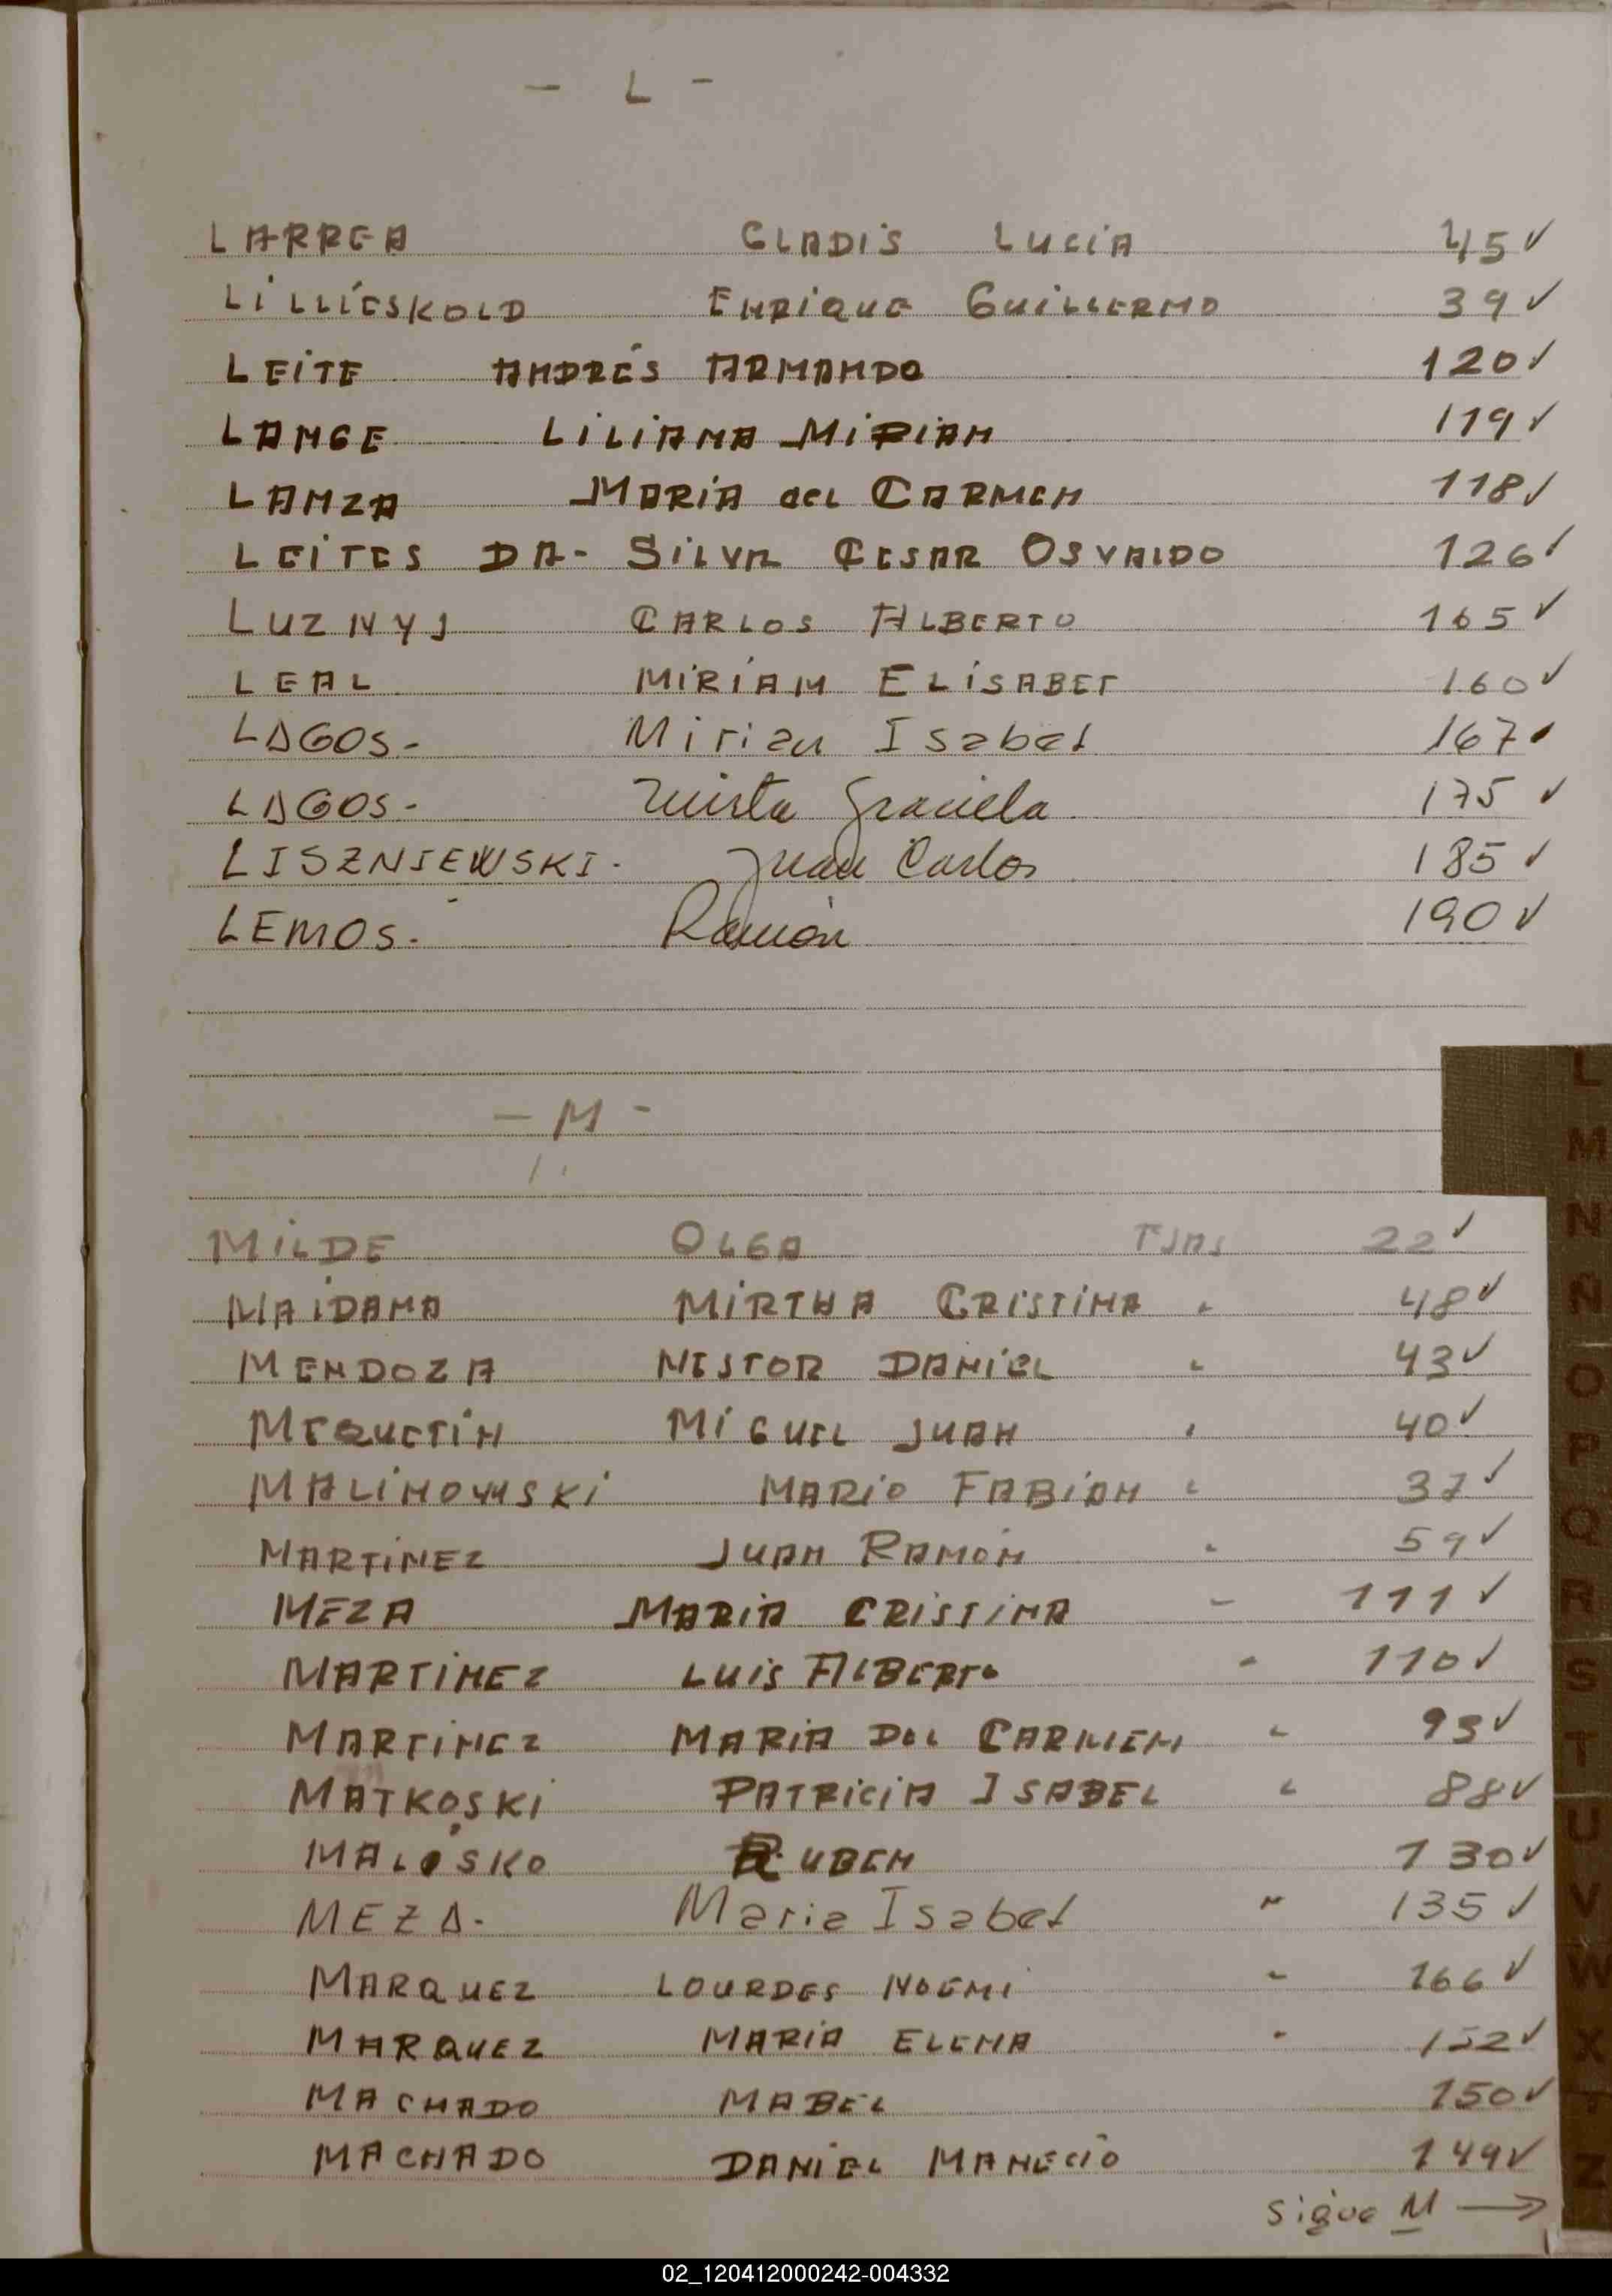 - L -
LARREA GLADIS LUCIA 45 ✓
LILLIESKOLD ENRIQUE GUILLERMO 39 ✓
LEITE ANDRÉS ARMANDO 120 ✓
LANGE LILIANA MIRIAN 119 ✓
LANZA MARIA del CARMEN 118 ✓
LEITES DA- SILVA CESAR OSVALDO 126 ✓
LUZNYJ CARLOS ALBERTO 165 ✓
LEAL MIRIAM ELISABET 160 ✓
LAGOS.- Mirian Isabel 167
LAGOS.- Mirta Graciela 175 ✓
LISZNIEWSKI.- Juan Carlos 185 ✓
LEMOS.- Ramón 190 ✓
- M -
MILDE OLGA FJAS 22 ✓
MAIDANA MIRTHA CRISTINA " 48 ✓
MENDOZA NESTOR DANIEL " 43 ✓
MEQUETIN MIGUEL JUAN " 40 ✓
MALINOWSKI MARIO FABIAN " 37 ✓
MARTINEZ JUAN RAMON " 59 ✓
MEZA MARIA CRISTINA " 111 ✓
MARTINEZ LUIS ALBERTO " 110 ✓
MARTINEZ MARIA DEL CARMEN " 93 ✓
MATKOSKI PATRICIA ISABEL " 88 ✓
MALOSKO RUBEN 130 ✓
MEZA.- Maria Isabel " 135 ✓
MARQUEZ LOURDES NOEMI " 166 ✓
MARQUEZ MARIA ELENA " 152 ✓
MACHADO MABEL 150 ✓
MACHADO DANIEL 149 ✓
Sigue M →
L
M
N
Ñ
O
P
Q
R
S
T
U
V
W
X
Y
Z
02_120412000242-004332